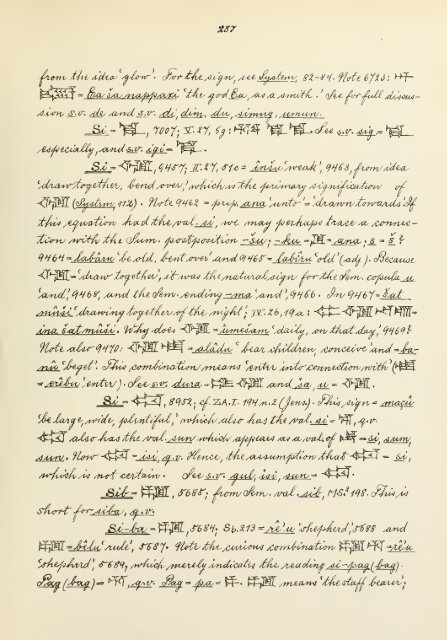 287
from the idea 'glow'. For the sign, see System, 82-84. Note 6723:
= Ea ša nappaxi 'the god Ea, as a smith.' See for full discus-
sion s.v. de and s.v. di, dim, du, simug, umun.
Si = , 7007; V. 27, 5g: . See s.v. sig =
especially, and s.v. igi = .
Si = , 6457; II. 27, 51c = înšu 'weak', 9463, from idea
'draw together, bend over,' which is the primary signification of
(System, 112). Note 9462 = prep. ana 'unto' = 'drawn towards.' If
this equation had the val. si, we may perhaps trace a connec-
tion with the Sum. postposition -šu; -ku = = ana; s = š?
9464 = labâru 'be old, bent over' and 9465 = labiru 'old' (adj.). Because
= 'draw together', it was the natural sign for the Sem. copula u
'and', 9468, and the Sem. ending -ma 'and', 9466. In 9467 = šat
mûši 'drawing together of the night'; IV. 26, 19a:
ina šat mûši. Why does = ûmešam 'daily, on that day,' 9469?
Note also 9470: = alâdu 'bear children, conceive' and = ba-
nû 'beget'. This combination means 'enter into connection with' (
= erêbu 'enter'). See s.v. dura = and ša, u = .
Si = , 8952; cf. ZA. I. 194 n. 2 (Jens). This sign = maçû
'be large, wide, plentiful,' which also has the val. si = , q.v.
also has the val. sun which appears as a val. of = si, sum,
sun. Now = isi, q.v. Hence, the assumption that = si,
which is not certain. See s.v. gul, isi, sun = .
Sib = , 5685; from Sem. val. sib, MS. 198. This is
short for siba, q.v.
Si-ba = , 5684; Sb. 213 = rê'u 'shepherd', 5688 and
= bêlu 'rule', 5687. Note the curious combination = rê'u
'shepherd', 5689, which merely indicates the reading si-pag (bag).
Pag (bag) = , q.v. Pag = pa = . means 'the staff bearer';